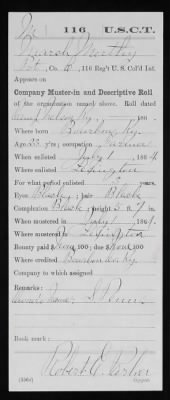 M 116 U.S.C.T.
Marsh
Pvt., Co. 116 Reg't U. S. Col'd Inf.
Appears on
Company Muster-in and Descriptive Roll
of the organization named above. Roll dated
Camp Nelson Ky., 186 .
Where born Bourbon Ky.
Age 23 y'rs; occupation Farmer
When enlisted July 1, 1864.
Where enlisted Lexington
For what period enlisted 3 years.
Eyes Black; hair Black
Complexion Black; height 5 ft. 7 in.
When mustered in July 1, 1864.
Where mustered in Lexington
Bounty paid $ None 100; due $ None 100
Where credited Bourbon Co Ky
Company to which assigned
Remarks:
Owner's name
Book mark:
Robert
(356c) Copyist.